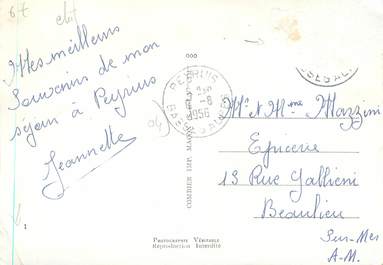 6€
Mes meilleurs
Souvenirs de mon
séjour à Peyruis
Jeannette
PEYRUIS
BASSES ALPES
1956
COMBIER IMP. MACON
Mr et Mme Mazzini
Epicerie
13 Rue Gallieni
Beaulieu
Sur-Mer
A-M.
1
Photographie Véritable
Reproduction Interdite